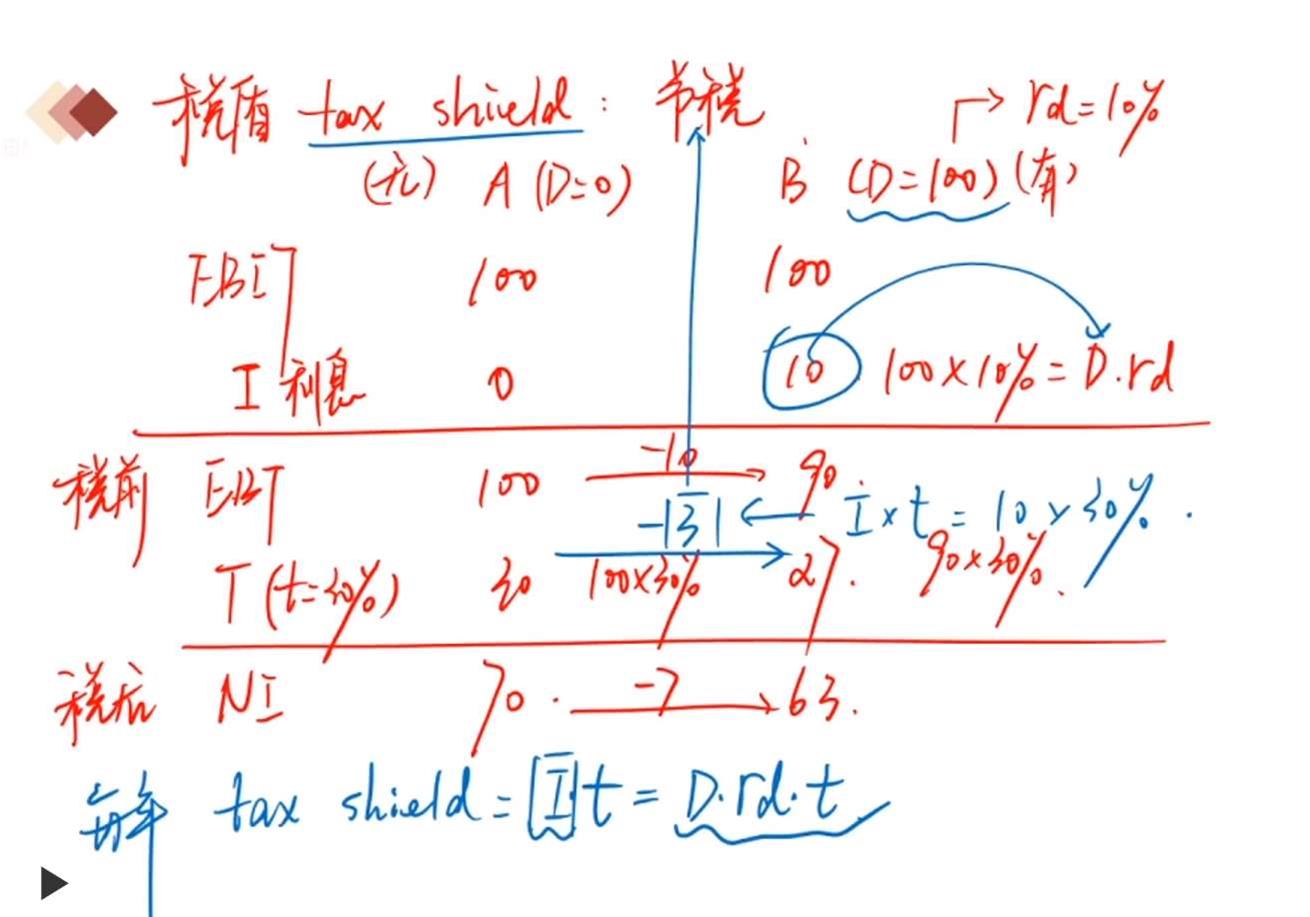 税盾 tax shield: 节税 → rd=10%
(无) A (D=0) B (D=100) (有)
EBIT 100 100
I 利息 0 10 100×10%=D.rd
税前 EBT 100 -10 90
-|3| ← I×t = 10×30%.
T (t=30%) 30 100×30% 27. 90×30%.
税后 NI 70. -7 63.
每年 tax shield = I t = D.rd.t